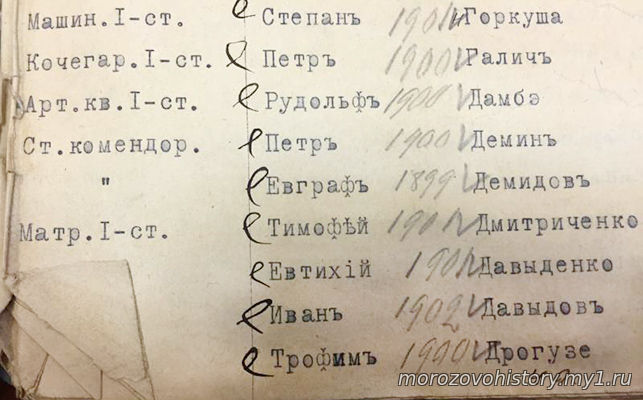 Машин.I-ст. Степанъ 1901 Горкуша
Кочегар.I-ст. Петръ 1900 Галичъ
Арт.кв.I-ст. Рудольфъ 1900 Дамбэ
Ст.комендор. Петръ 1900 Деминъ
" Евграфъ 1899 Демидовъ
Матр.I-ст. Тимофѣй 1901 Дмитриченко
Евтихій 1901 Давыденко
Иванъ 1902 Давыдовъ
Трофимъ 1900 Дрогузе
morozovohistory.my1.ru